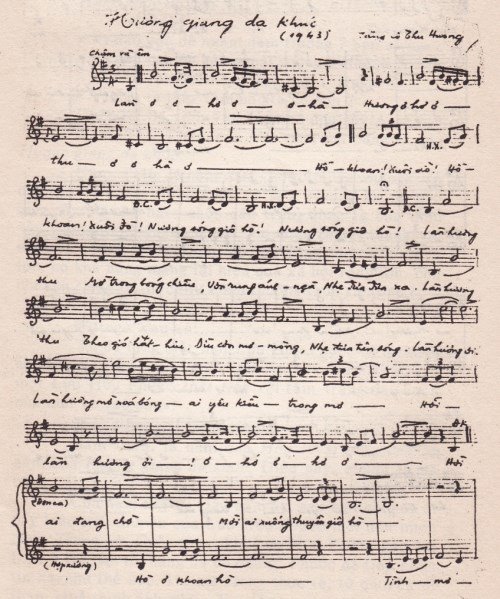 Hương giang dạ khúc
(1943)
Tặng cô Thu Hương
Chậm rãi êm
Lan ơ ơ — hơ ơ — ơ — hơ — Hương ơ hơ ơ —
thu — ơ ơ hơ ơ — Hò — khoan! Xuôi đò! Hò —
khoan! Xuôi đò! Nương sóng gió hò! Nương sóng gió hò! Làn hương
thu Mờ trong bóng chiều, Vờn rung ánh — ngà, Nhẹ đưa đưa xa. Làn hương
thu Theo gió hắt — hiu, Dìu cơn mơ — mòng, Nhẹ đưa trên sông. Làn hương ơi.
Làn hương mờ xoá bóng — ai yêu kiều — trong mơ — Hỡi —
làn hương ơi — ! ơ — hơ ơ hơ ơ — Hỡi
(Đơn ca)
ai đang chờ — Mời ai xuống thuyền gió hò —
(Hợp xướng)
Hò ơ khoan hò — Tình — mơ —